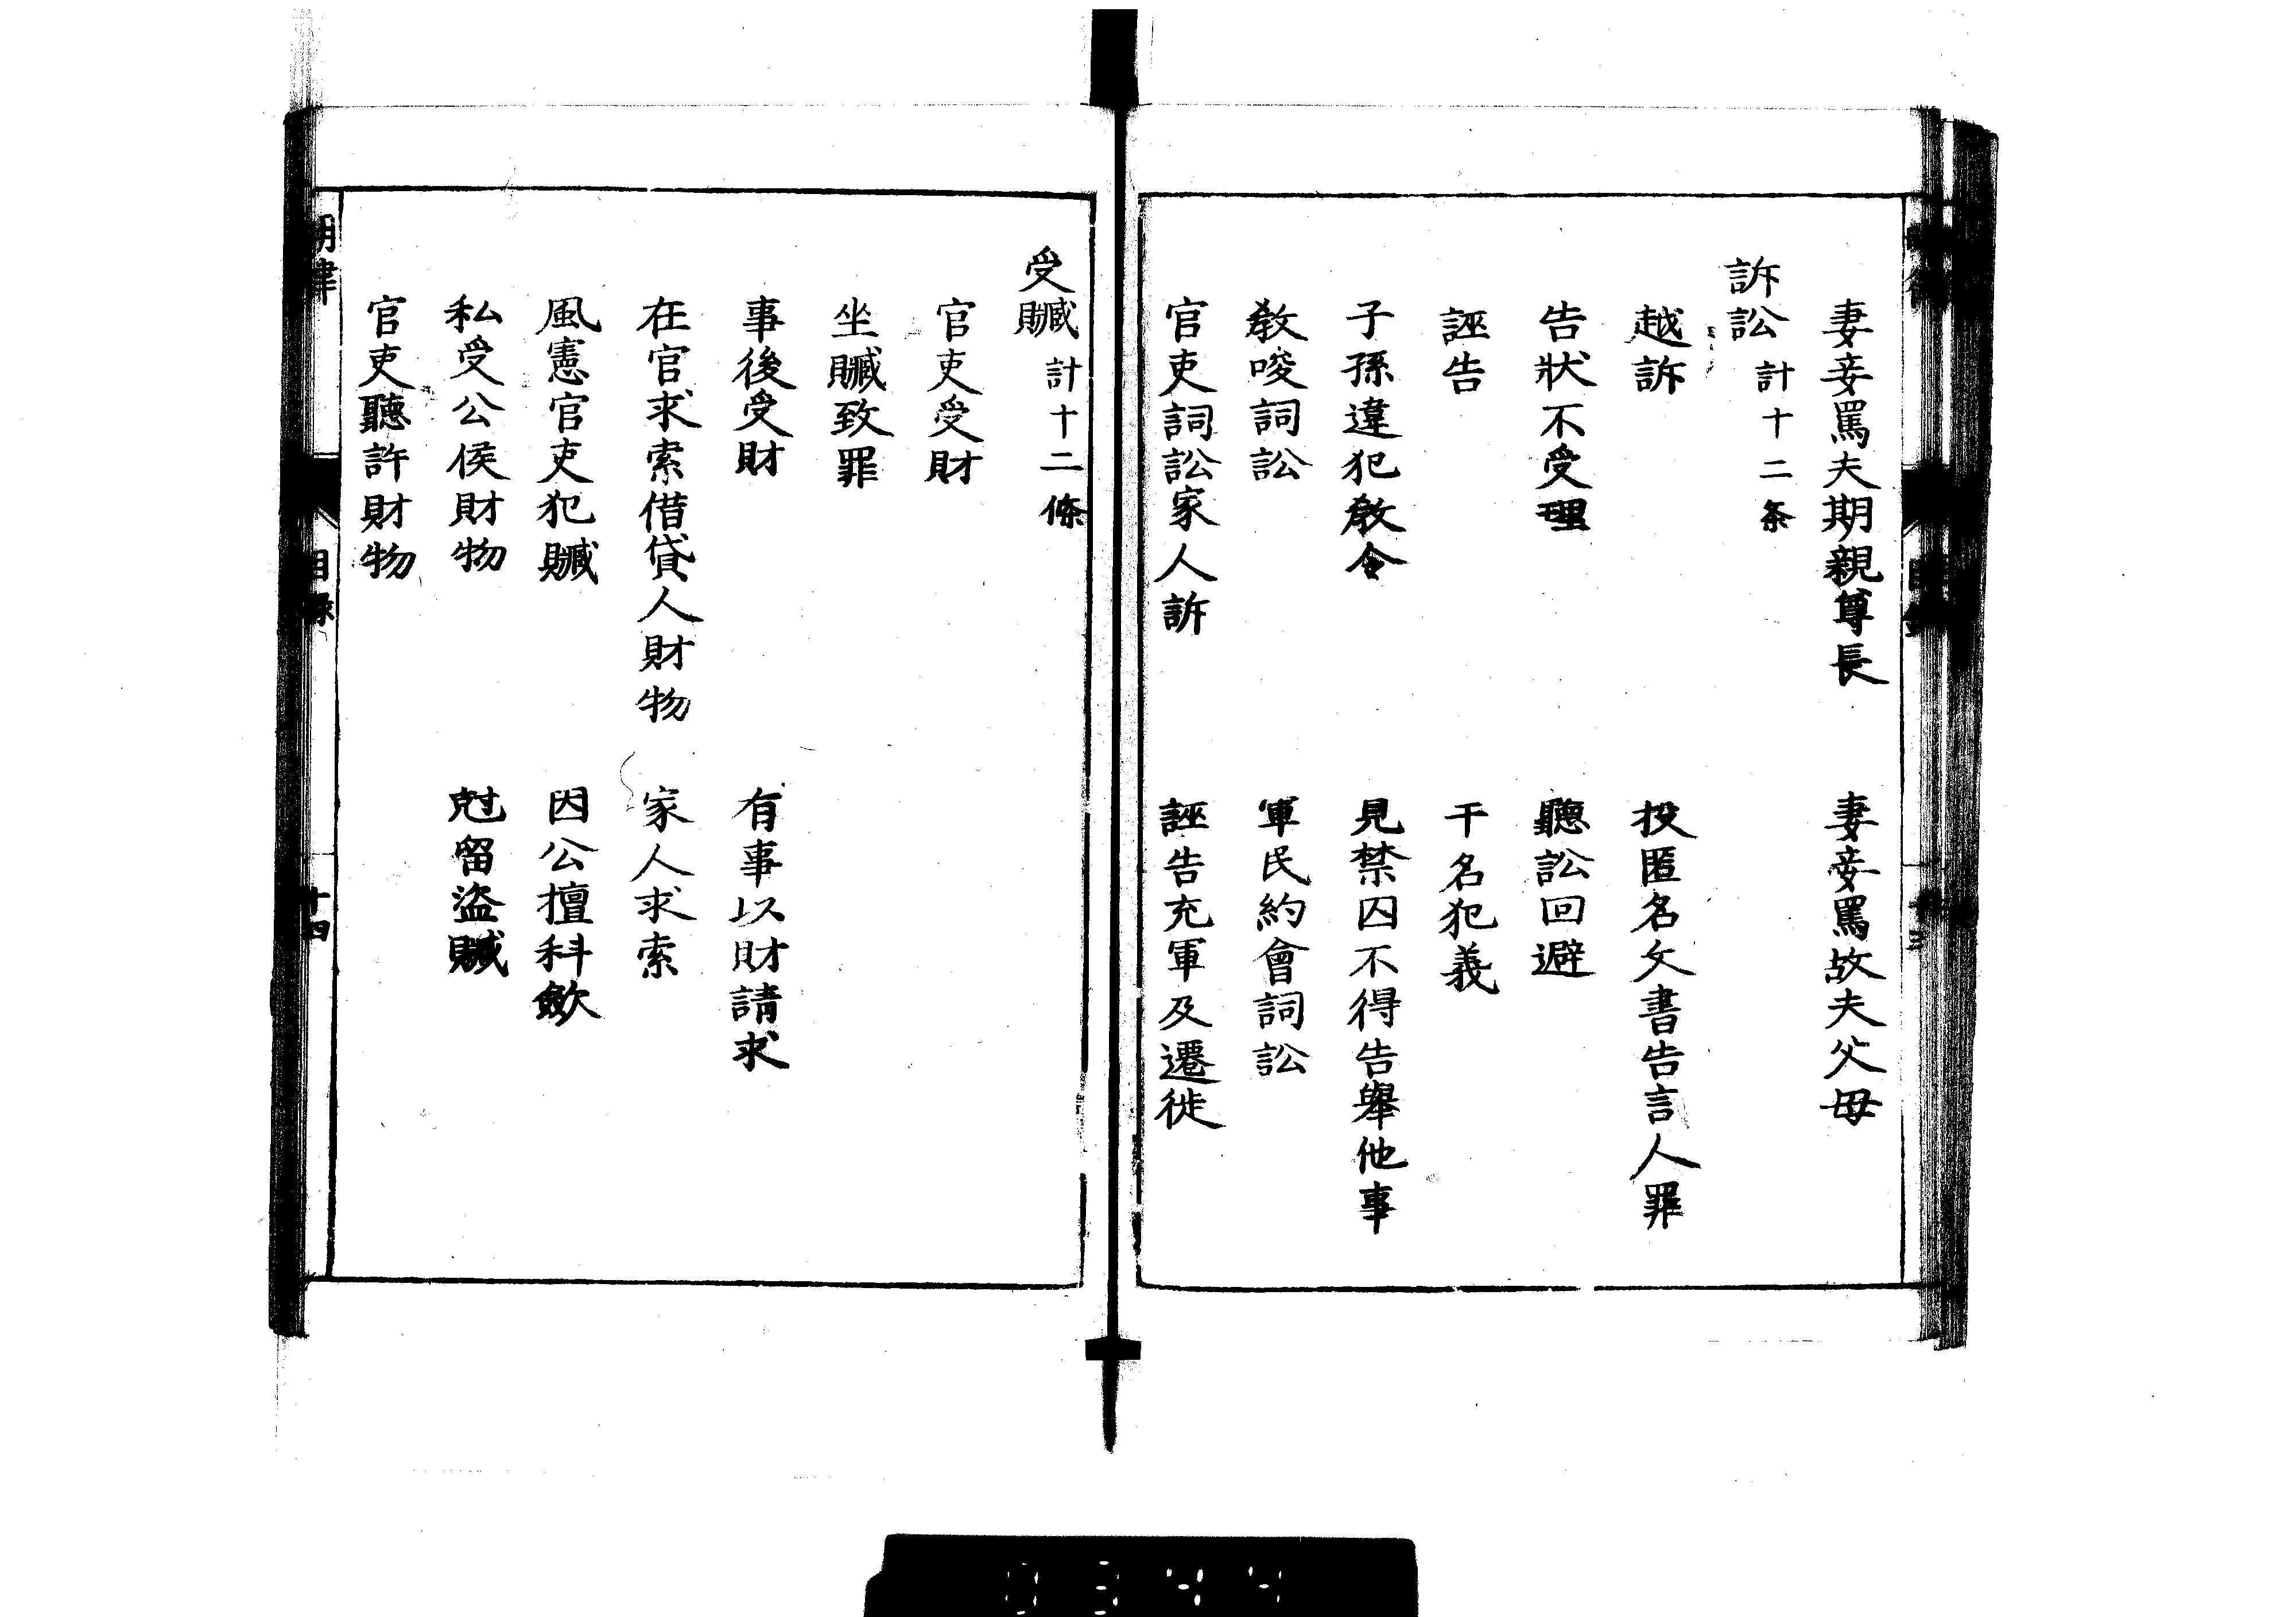 妻妾罵夫期親尊長　妻妾罵故夫父母
訴訟計十二条
越訴　投匿名文書告言人罪
告狀不受理　聽訟回避
誣告　干名犯義
子孫違犯教令　見禁囚不得告舉他事
教唆詞訟　軍民約會詞訟
官吏詞訟家人訴　誣告充軍及遷徙
受贓計十二條
官吏受財
坐贓致罪
事後受財　有事以財請求
在官求索借貸人財物　家人求索
風憲官吏犯贓　因公擅科斂
私受公侯財物　尅留盜贓
官吏聽許財物
明律　目錄　十四
0344